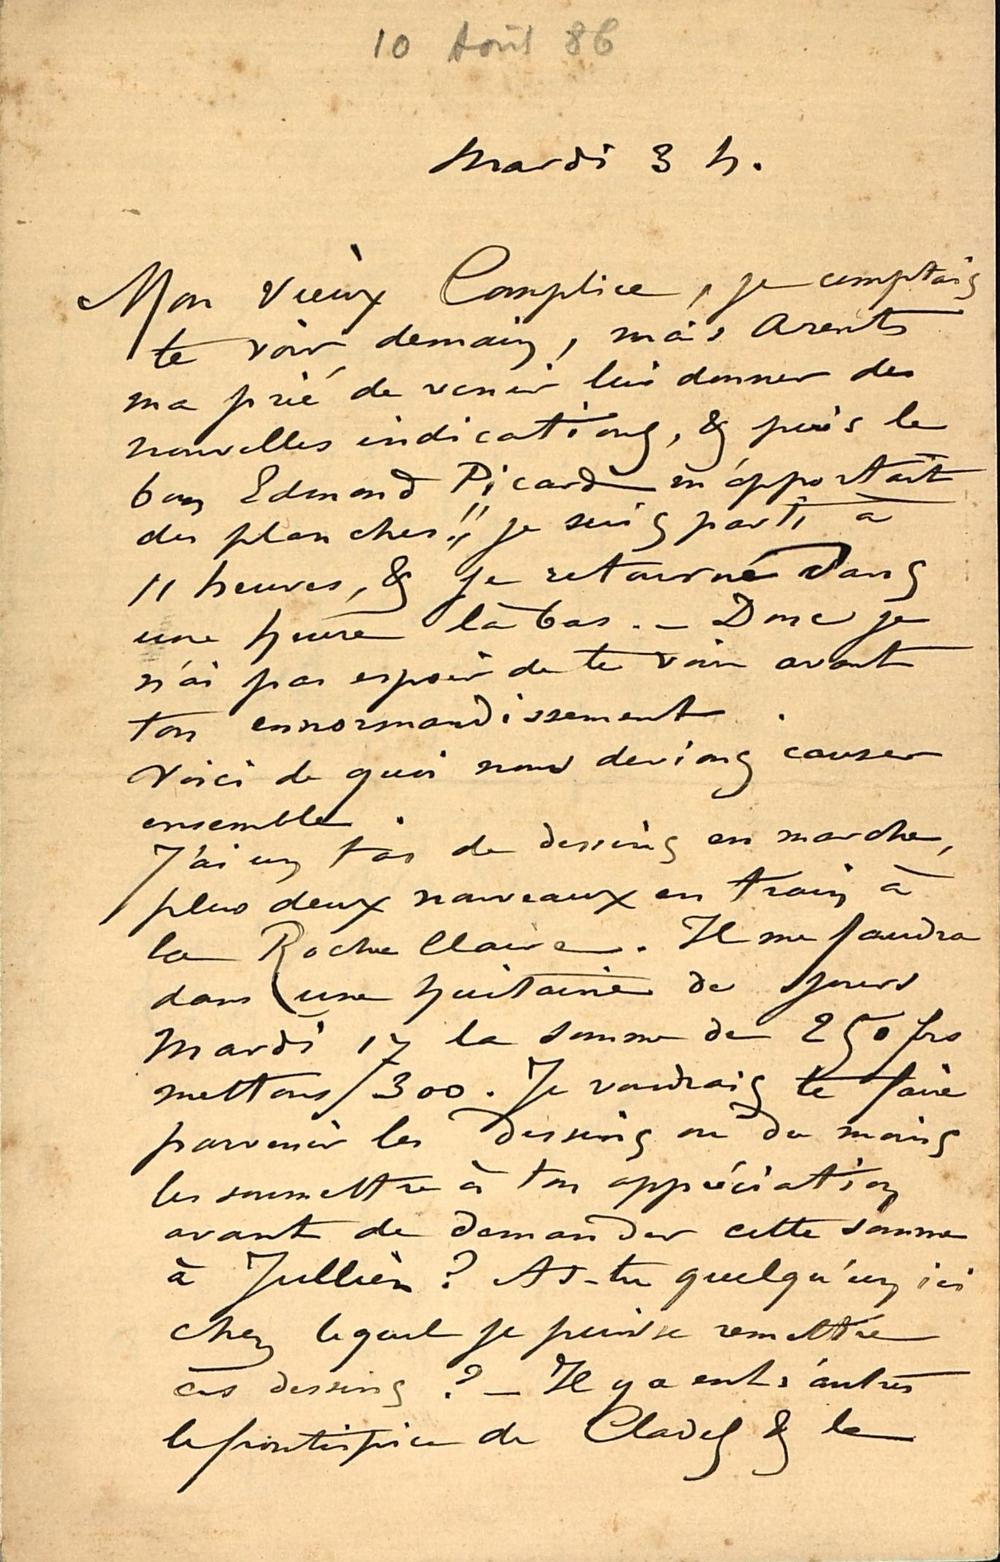 10 Août 86
Mardi 3 h.
Mon vieux Complice, je comptais
te voir demain, mais Arents
m'a prié de venir lui donner des
nouvelles indications, & puis le
bon Edmond Picard m'apportait
des planches!! je suis parti à
11 heures, & je retourne dans
une heure là bas. _ Donc je
n'ai pas espoir de te voir avant
ton ennormandissement.
Voici de quoi nous devions causer
ensemble.
J'ai un tas de dessins en marche,
plus deux nouveaux en train à
la Roche Claire. Il me faudra
dans une huitaine de jours
Mardi 17 la somme de 250 frs
mettons 300. Je voudrais te faire
parvenir les dessins ou du moins
les soumettre à ton appréciation
avant de demander cette somme
à Jullien ? As-tu quelqu'un ici
chez lequel je puisse remettre
ces dessins ? _ Il y a entr'autres
le frontispice de Cladel & la